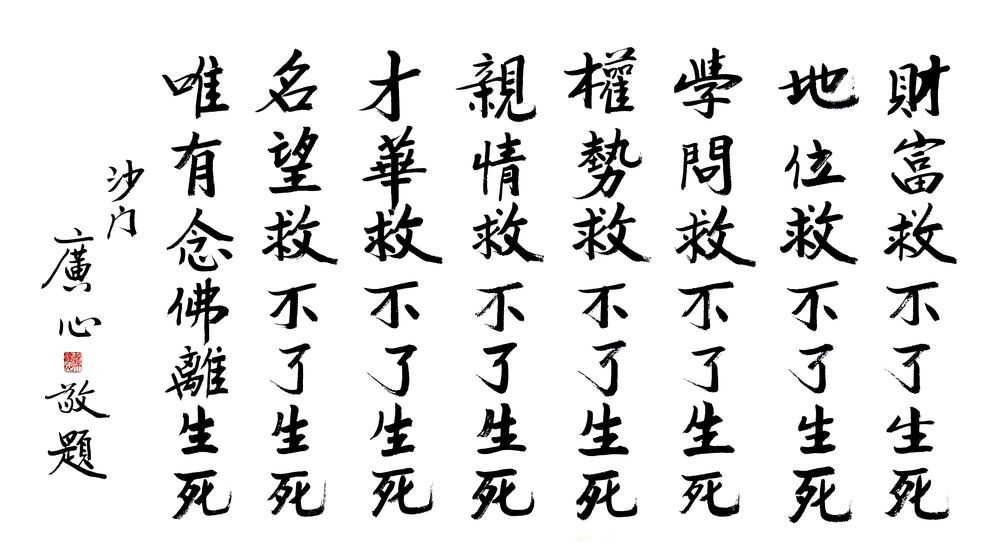 財富救不了生死
地位救不了生死
學問救不了生死
權勢救不了生死
親情救不了生死
才華救不了生死
名望救不了生死
唯有念佛離生死
沙门
廣心敬題